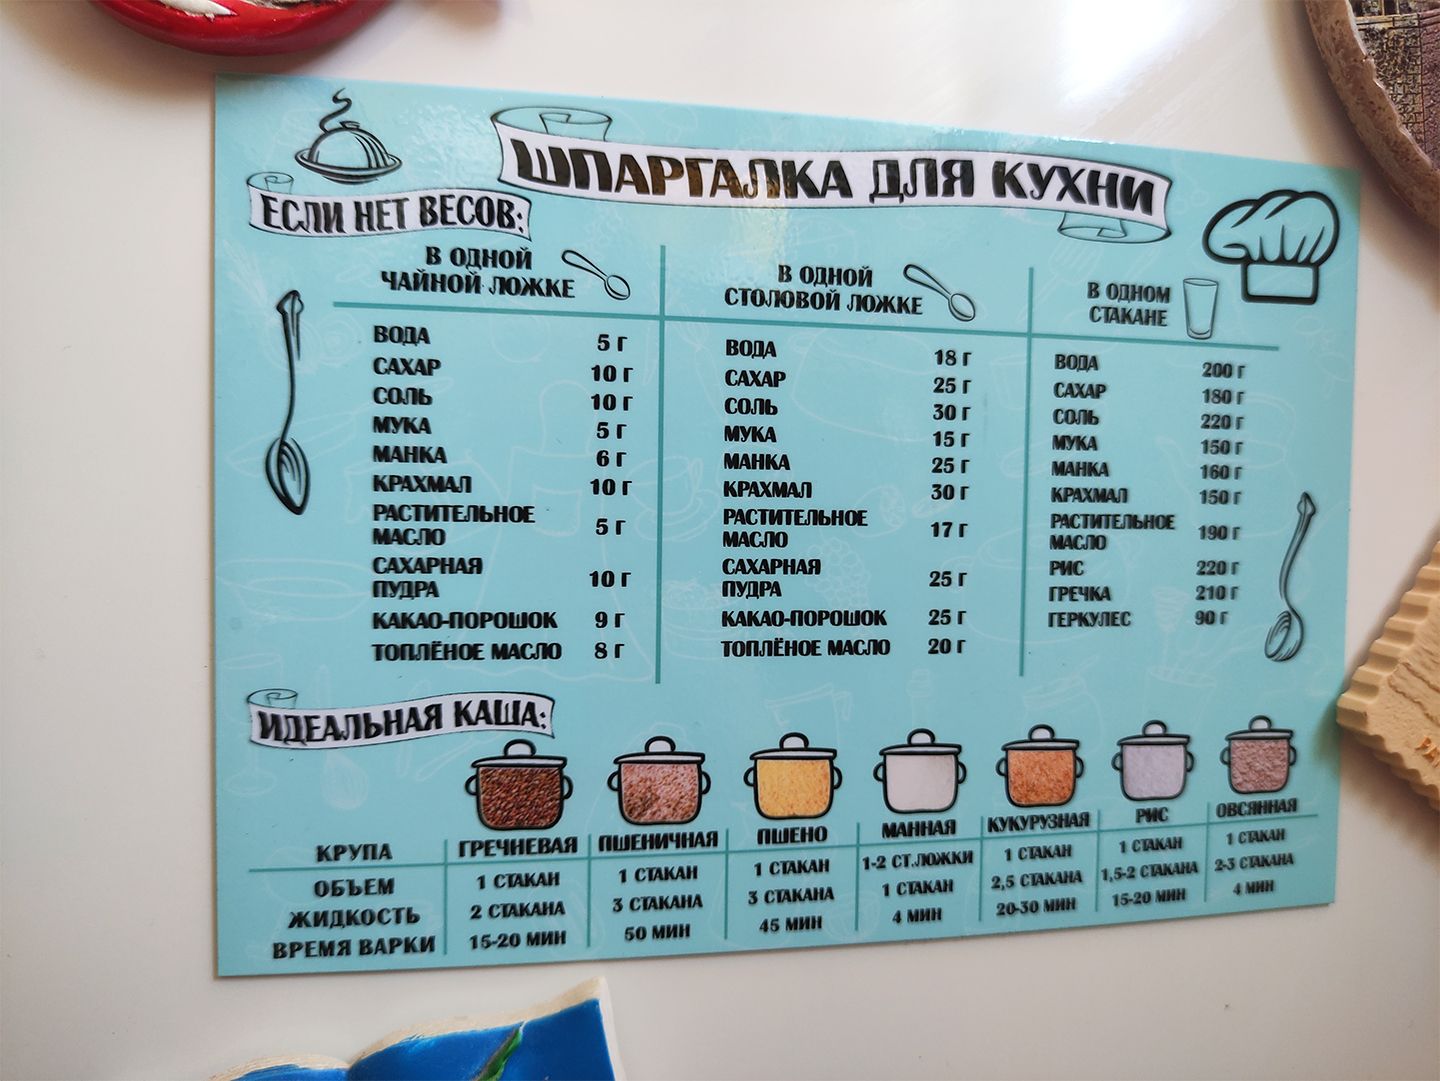 ШПАРГАЛКА ДЛЯ КУХНИ
ЕСЛИ НЕТ ВЕСОВ:
В ОДНОЙ
ЧАЙНОЙ ЛОЖКЕ
ВОДА 5 Г
САХАР 10 Г
СОЛЬ 10 Г
МУКА 5 Г
МАНКА 6 Г
КРАХМАЛ 10 Г
РАСТИТЕЛЬНОЕ
МАСЛО 5 Г
САХАРНАЯ
ПУДРА 10 Г
КАКАО-ПОРОШОК 9 Г
ТОПЛЁНОЕ МАСЛО 8 Г
В ОДНОЙ
СТОЛОВОЙ ЛОЖКЕ
ВОДА 18 Г
САХАР 25 Г
СОЛЬ 30 Г
МУКА 15 Г
МАНКА 25 Г
КРАХМАЛ 30 Г
РАСТИТЕЛЬНОЕ
МАСЛО 17 Г
САХАРНАЯ
ПУДРА 25 Г
КАКАО-ПОРОШОК 25 Г
ТОПЛЁНОЕ МАСЛО 20 Г
В ОДНОМ
СТАКАНЕ
ВОДА 200 Г
САХАР 180 Г
СОЛЬ 220 Г
МУКА 150 Г
МАНКА 160 Г
КРАХМАЛ 150 Г
РАСТИТЕЛЬНОЕ
МАСЛО 190 Г
РИС 220 Г
ГРЕЧКА 210 Г
ГЕРКУЛЕС 90 Г
ИДЕАЛЬНАЯ КАША:
КРУПА ГРЕЧНЕВАЯ ПШЕНИЧНАЯ ПШЕНО МАННАЯ КУКУРУЗНАЯ РИС ОВСЯННАЯ
ОБЪЕМ 1 СТАКАН 1 СТАКАН 1 СТАКАН 1-2 СТ.ЛОЖКИ 1 СТАКАН 1 СТАКАН 1 СТАКАН
ЖИДКОСТЬ 2 СТАКАНА 3 СТАКАНА 3 СТАКАНА 1 СТАКАН 2,5 СТАКАНА 1,5-2 СТАКАНА 2-3 СТАКАНА
ВРЕМЯ ВАРКИ 15-20 МИН 50 МИН 45 МИН 4 МИН 20-30 МИН 15-20 МИН 4 МИН